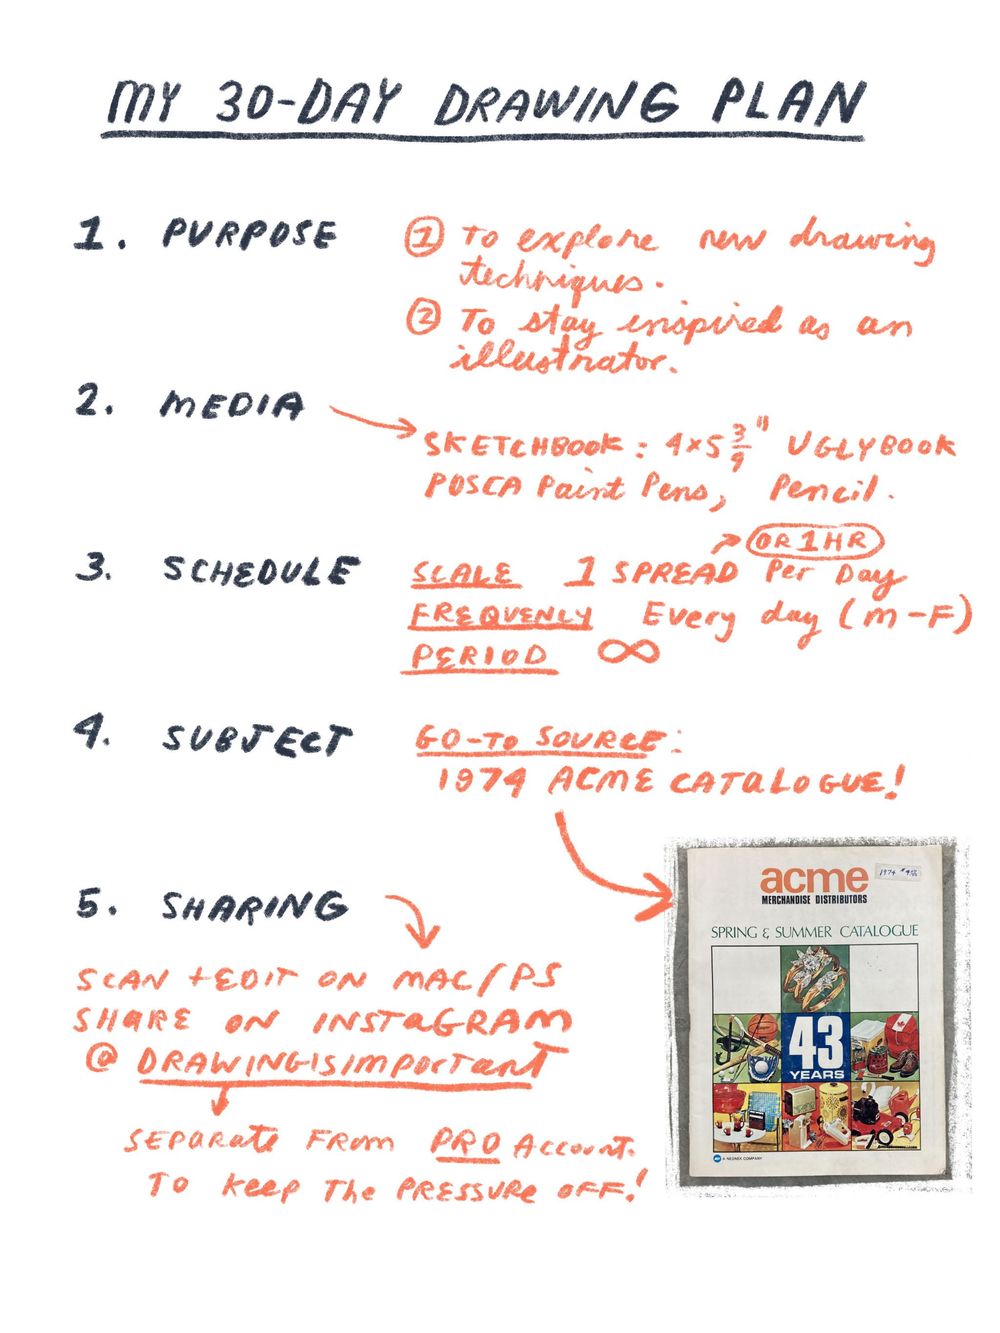 MY 30-DAY DRAWING PLAN
1. PURPOSE
① To explore new drawing
techniques.
② To stay inspired as an
illustrator.
2. MEDIA
SKETCHBOOK: 4x5 3/4" UGLYBOOK
POSCA Paint Pens, Pencil.
3. SCHEDULE
OR 1 HR
SCALE 1 SPREAD Per Day
FREQUENLY Every day (M-F)
PERIOD ∞
4. SUBJECT
GO-TO SOURCE:
1974 ACME CATALOGUE!
5. SHARING
SCAN + EDIT ON MAC/PS
SHARE ON INSTAGRAM
@DRAWINGISIMPORTANT
SEPARATE FROM PRO ACCOUNT.
TO KEEP THE PRESSURE OFF!
acme
MERCHANDISE DISTRIBUTORS
1974
SPRING & SUMMER CATALOGUE
43
YEARS
A NEONEX COMPANY